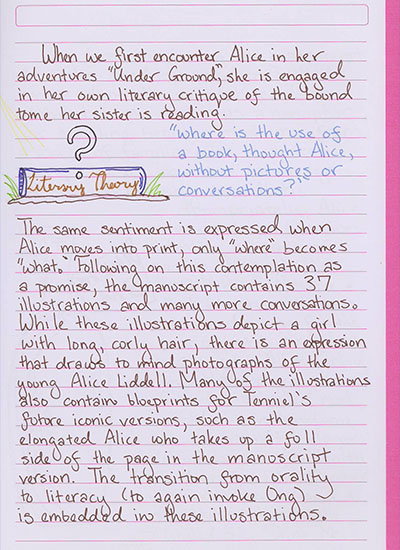 When we first encounter Alice in her
adventures "Under Ground," she is engaged
in her own literary critique of the bound
tome her sister is reading.
"where is the use of
a book, thought Alice,
without pictures or
conversations?"
?
Literary Theory
The same sentiment is expressed when
Alice moves into print, only "where" becomes
"what." Following on this contemplation as
a promise, the manuscript contains 37
illustrations and many more conversations.
While these illustrations depict a girl
with long, corly hair, there is an expression
that draws to mind photographs of the
young Alice Liddell. Many of the illustrations
also contain blueprints for Tenniel's
future iconic versions, such as the
elongated Alice who takes up a full
side of the page in the manuscript
version. The transition from orality
to literacy (to again invoke Ong)
is embedded in these illustrations.